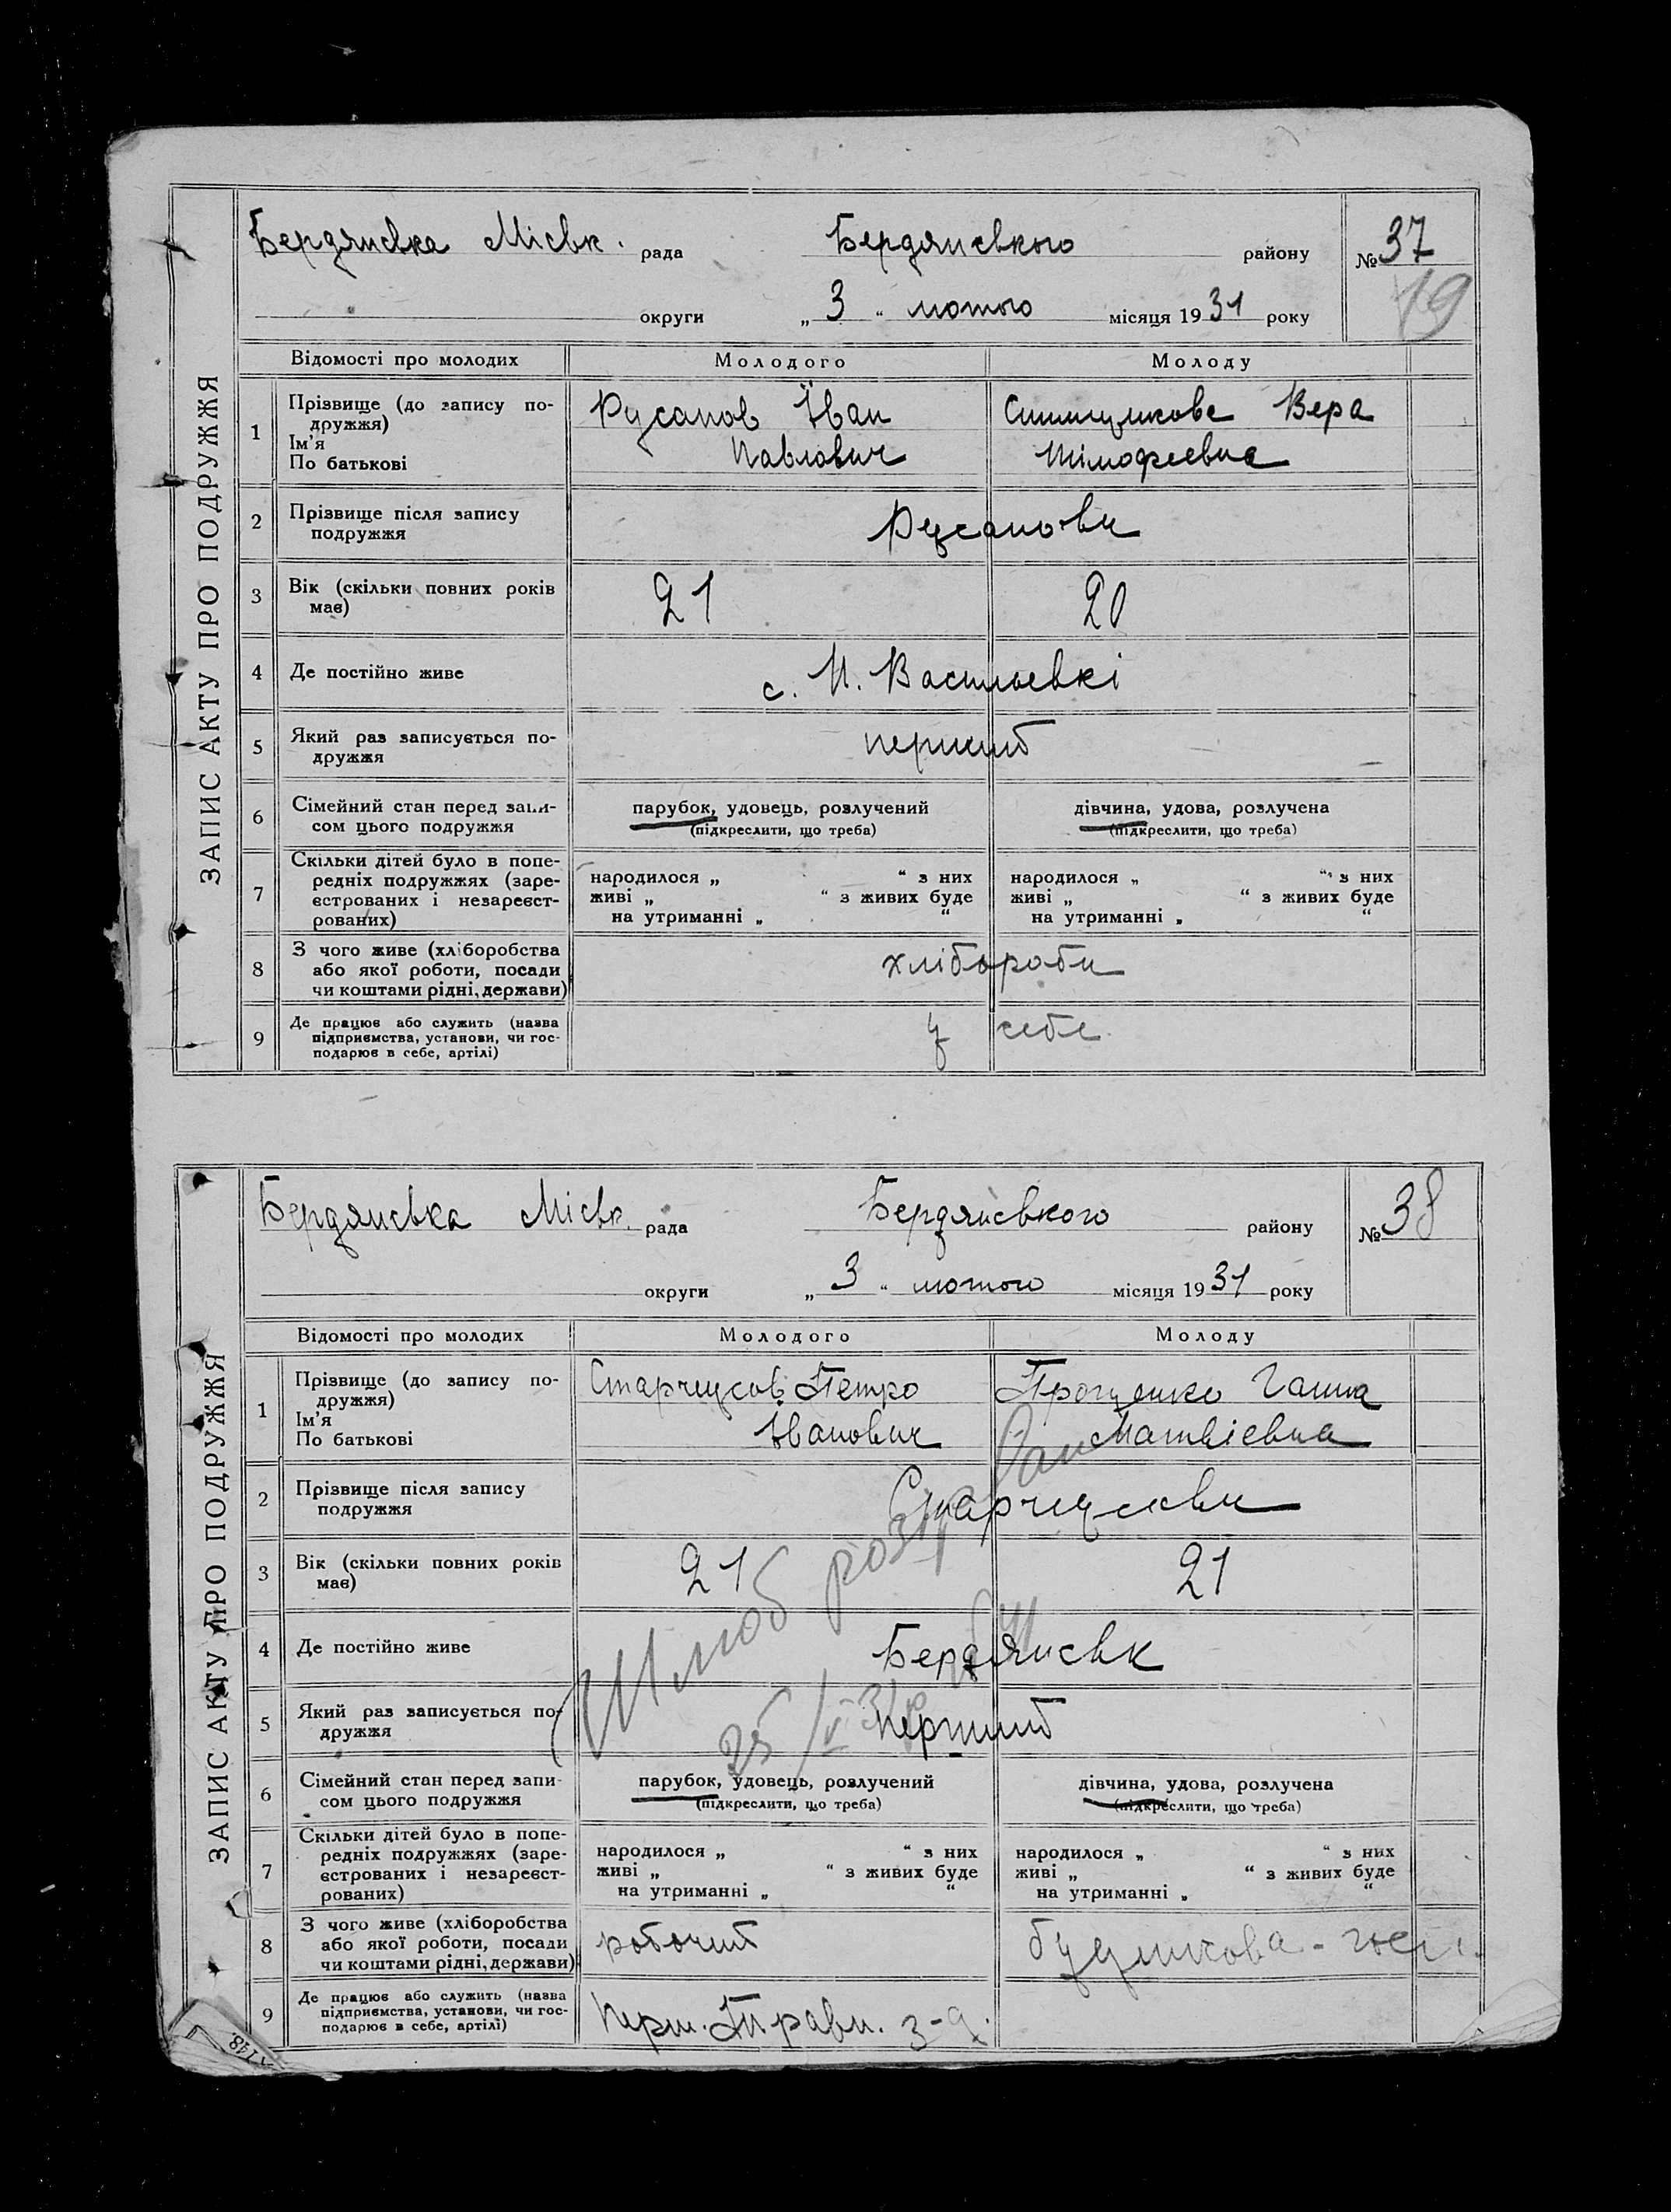 ЗАПИС АКТУ ПРО ПОДРУЖЖЯ
Бердянська Міськ. рада Бердянського району № 37
19
округи „ 3 “ лютого місяця 1931 року
Відомості про молодих Молодого Молоду
1 Прізвище (до запису по-
дружжя)
Ім'я
По батькові
Русанов Іван
Павлович
Вера
Тімофеевна
2 Прізвище після запису
подружжя
Русанови
3 Вік (скільки повних років
має)
21 20
4 Де постійно живе
с. Н. Васильевкі
5 Який раз записується по-
дружжя
перший
6 Сімейний стан перед запи-
сом цього подружжя
парубок, удовець, розлучений
(підкреслити, що треба)
дівчина, удова, розлучена
(підкреслити, що треба)
7 Скільки дітей було в попе-
редніх подружжях (заре-
єстрованих і незареєст-
рованих)
народилося „ “ з них
живі „ “ з живих буде
на утриманні „ “
народилося „ “ з них
живі „ “ з живих буде
на утриманні „ “
8 З чого живе (хліборобства
або якої роботи, посади
чи коштами рідні, держави)
хлібороби
9 Де працює або служить (назва
підприємства, установи, чи гос-
подарює в себе, артілі)
у себе
ЗАПИС АКТУ ПРО ПОДРУЖЖЯ
Бердянська Міськ. рада Бердянського району № 38
округи „ 3 “ лютого місяця 1931 року
Відомості про молодих Молодого Молоду
1 Прізвище (до запису по-
дружжя)
Ім'я
По батькові
Старчеусов Петро
Іванович
Проценко Ганна
Матвієвна
2 Прізвище після запису
подружжя
3 Вік (скільки повних років
має)
21 21
Шлюб
4 Де постійно живе
Бердянськ
5 Який раз записується по-
дружжя
перший
6 Сімейний стан перед запи-
сом цього подружжя
парубок, удовець, розлучений
(підкреслити, що треба)
дівчина, удова, розлучена
(підкреслити, що треба)
7 Скільки дітей було в попе-
редніх подружжях (заре-
єстрованих і незареєст-
рованих)
народилося „ “ з них
живі „ “ з живих буде
на утриманні „ “
народилося „ “ з них
живі „ “ з живих буде
на утриманні „ “
8 З чого живе (хліборобства
або якої роботи, посади
чи коштами рідні, держави)
робочий
9 Де працює або служить (назва
підприємства, установи, чи гос-
подарює в себе, артілі)
Перш. Травн. з-д.